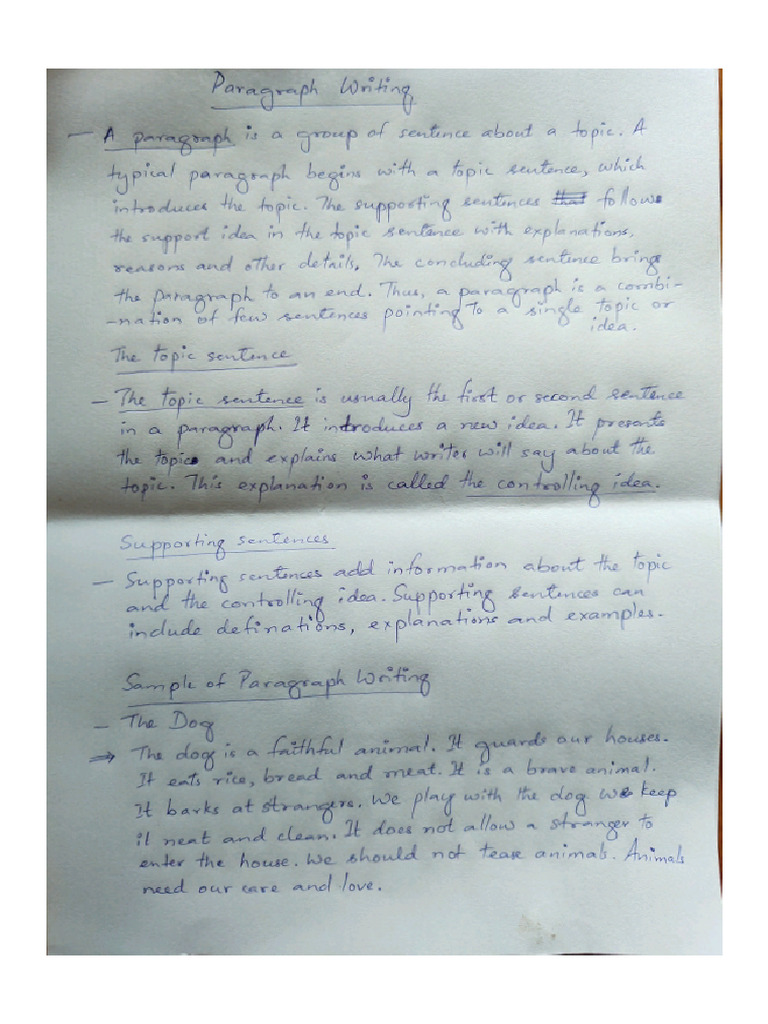 Paragraph Writing
- A paragraph is a group of sentence about a topic. A
typical paragraph begins with a topic sentence, which
introduces the topic. The supporting sentences that follow
the support idea in the topic sentence with explanations,
reasons and other details. The concluding sentence brings
the paragraph to an end. Thus, a paragraph is a combi-
-nation of few sentences pointing to a single topic or
idea.
The topic sentence
- The topic sentence is usually the first or second sentence
in a paragraph. It introduces a new idea. It presents
the topic and explains what writer will say about the
topic. This explanation is called the controlling idea.
Supporting sentences
- Supporting sentences add information about the topic
and the controlling idea. Supporting sentences can
include definations, explanations and examples.
Sample of Paragraph Writing
- The Dog
⇒ The dog is a faithful animal. It guards our houses.
It eats rice, bread and meat. It is a brave animal.
It barks at strangers. We play with the dog we keep
it neat and clean. It does not allow a stranger to
enter the house. We should not tease animals. Animals
need our care and love.